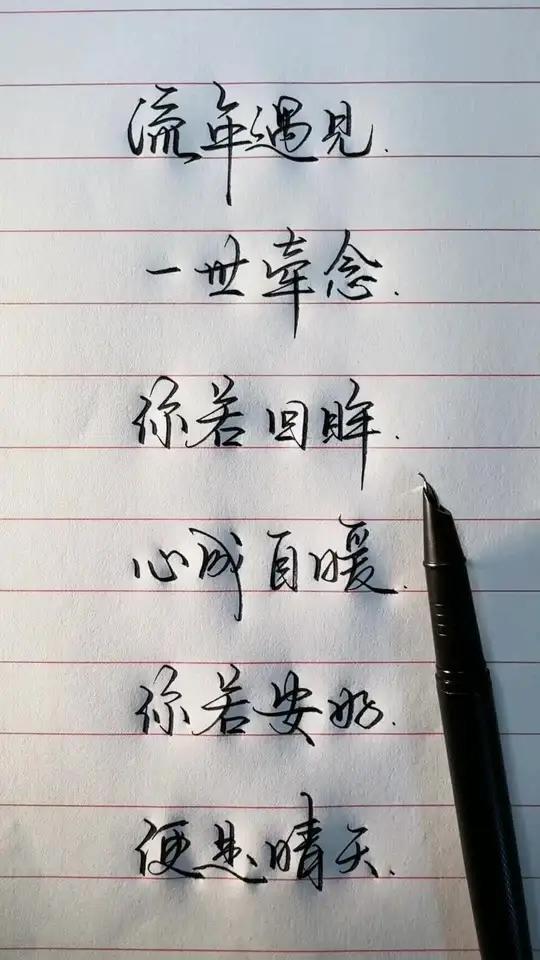 流年遇见.
一世牵念.
你若回眸.
心成自暖.
你若安好.
便是晴天.